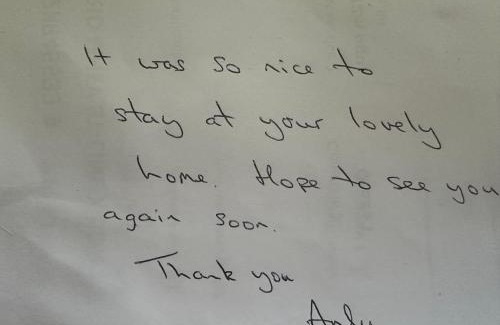 It was so nice to
stay at your lovely
home. Hope to see you
again soon.
Thank you